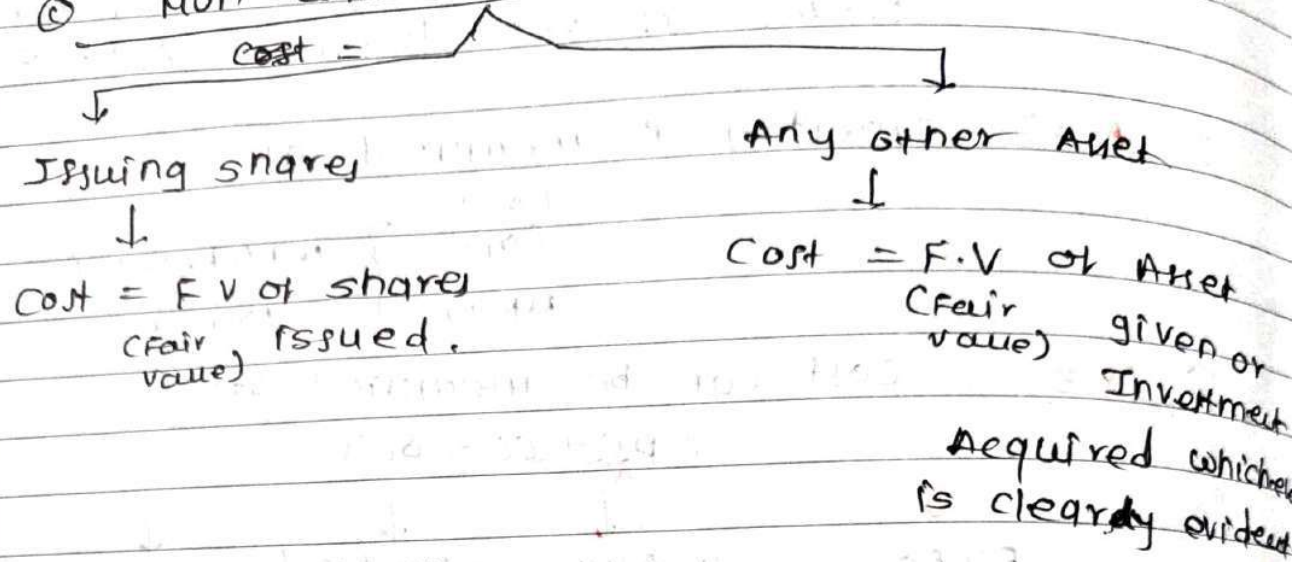 ©
Cost =
Issuing shares
Cost = F V of shares
(Fair value) issued.
Any other Asset
Cost = F.V of Asset
(Fair value) given or
Investment
Acquired which
is clearly evident